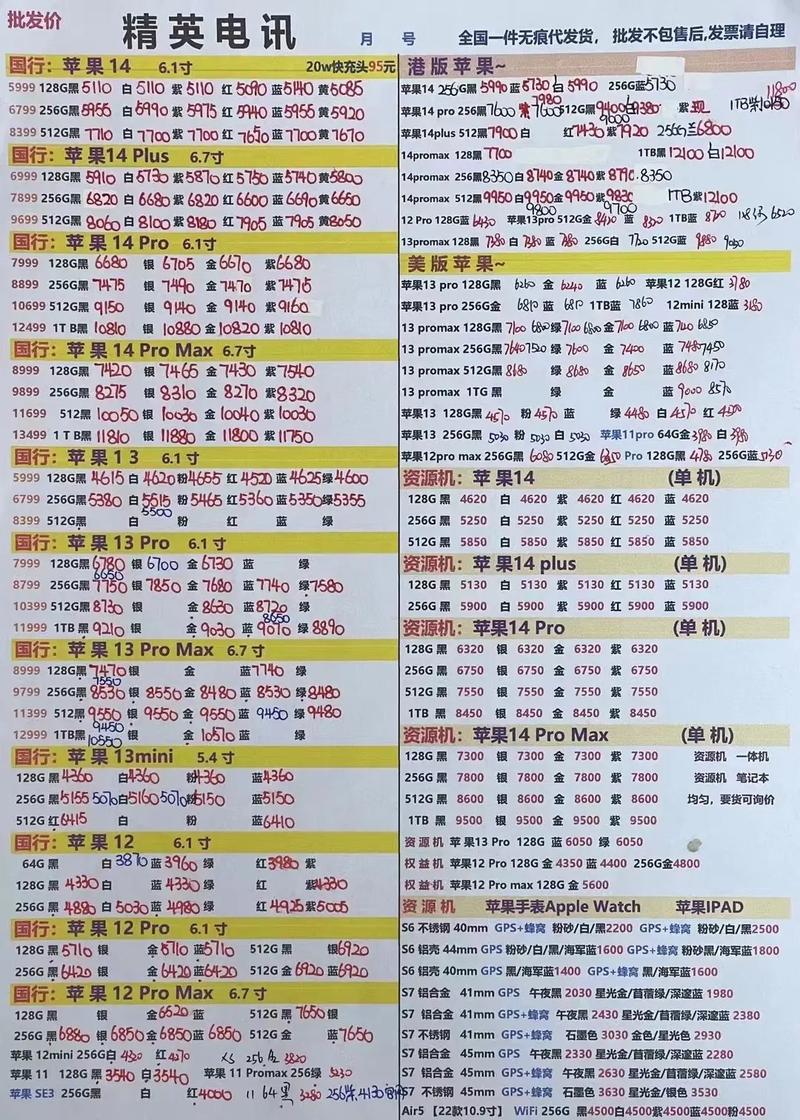 批发价
精英电讯
月 号
全国一件无痕代发货，批发不包售后,发票请自理
国行：苹果14 6.1寸 20w快充头95元
5999 128G黑5110 白5110 紫5110 红5090 蓝5140 黄5085
6799 256G黑5955 白5990 紫5975 红5940 蓝5955 黄5920
8399 512G黑7710 白7700 紫7700 红7650 蓝7700 黄7670
国行：苹果14 Plus 6.7寸
6999 128G黑5910 白5730 紫5870 红5750 蓝5740 黄5800
7899 256G黑6820 白6680 紫6820 红6600 蓝6690 黄6650
9699 512G黑8060 白8100 紫8180 红7905 蓝7905 黄8050
国行：苹果14 Pro 6.1寸
7999 128G黑 6680 银 6705 金6670 紫6680
8899 256G黑 7475 银 7490 金 7470 紫7475
10699 512G黑 9150 银 9140 金 9140 紫9160
12499 1T B黑 10810 银 10880 金10820 紫10810
国行：苹果14 Pro Max 6.7寸
8999 128G黑 7420 银 7465 金 7430 紫7540
9899 256G黑 8275 银 8310 金 8270 紫8320
11699 512黑 10050 银 10030 金 10040 紫10030
13499 1 T B黑 11810 银 11880 金 11800 紫11750
国行：苹果13 6.1寸
5999 128G黑4615 白4620 粉4655 红4520 蓝4625 绿4600
6799 256G黑5380 白5515 粉5465 红5360 蓝5350 绿5355
5500
8399 512G黑 白 粉 红 蓝 绿
国行：苹果13 Pro 6.1寸
7999 128G黑6780 银6700 金6730 蓝 绿
6650
8799 256G黑7750 银7850 金7680 蓝7740 绿7580
10399 512G黑8730 银 金8630 蓝8720 绿
8650
11999 1TB黑9210 银 金9030 蓝9070 绿8890
国行：苹果13 Pro Max 6.7寸
8999 128G黑7470 银 金 蓝7740 绿
7550
9799 256G黑8530 银8550 金8480 蓝8530 绿8480
11399 512黑9550 银9550 金9550 蓝9450 绿9480
9450
12999 1TB黑 银 金10570 蓝 绿
10550
国行：苹果13mini 5.4寸
128G 黑4360 白4360 粉4360 蓝4360
256G 黑5155 5070 白5160 5070 粉5150 蓝5150
512G 红6415 白 粉 蓝6410
国行：苹果12 6.1寸
64G 黑 白3870 蓝3960 绿 红3980 紫
128G 黑4330 白 蓝4330 绿 红 紫4330
256G 黑4880 白5030 蓝4980 绿 红4925 紫5005
国行：苹果12 Pro 6.1寸
128G 黑5710 银 金5710 蓝5710 512G 黑 银6920
256G 黑6420 银 金6420 蓝6420 512G 金6920 蓝6920
国行：苹果12 Pro Max 6.7寸
128G 黑 银 金6520 蓝 512G 黑7650 银
256G 黑6880 银6850 金6850 蓝6850 512G 金 蓝7650
苹果12mini 256G白4320 红4270 XS 256 3820
苹果11 128G 黑3540 白3540 苹果11 Promax 256绿 5230
苹果SE3 256G 黑 白 红4000 11 64黑 3280
港版苹果~
苹果14 256G黑5990 蓝5730 白5990 256G蓝5730
11800
苹果14 pro 256黑7600 紫7600 512G黑9400 白9380 紫 1TB紫10150
7980
9000
苹果14plus 512黑7900 白 红7430 紫7920 256G兰6800
14promax 128黑7700 1TB黑12100 白12100
苹果14promax 256黑8350 白8740 金8740 紫8790 8350
苹果14promax 512黑9950 白9950 金9950 紫9830 1TB紫12100
9800 9700
12 Pro 128G蓝6430 苹果13pro 512G金8420 蓝 8320 1TB蓝8720
13promax 128黑7380 白7380 蓝7380 256G白7720 512G蓝 9880 9050
美版苹果~
苹果13 pro 128G黑 6260 金 6240 蓝 6260 苹果12 128G红3780
苹果13 pro 256G金 6810 蓝 6810 1TB蓝 7860 12mini 128蓝3180
13 promax 128G黑7100 6800 绿7100 6800 金7100 6800 蓝7140 6850
13 promax 256G黑7640 7520 绿 7600 金 7400 蓝 7480 7450
13 promax 512G黑 8680 绿 8680 金 8650 蓝 8680 8170
13 promax 1TG黑 绿 金 蓝 9000 8570
苹果13 128G黑4570 粉4570 蓝 绿 4480 白4570 红4500
苹果13 256G黑 5030 粉 5030 白 5030 苹果11pro 64G金3980 白3980
苹果12pro max 256G黑 6080 512G金 6350 Pro 128G黑 4780 256G蓝5130
资源机：苹果14 (单机)
128G 黑 4620 白 4620 紫 4620 红 4620 蓝 4620
256G 黑 5250 白 5250 紫 5250 红 5250 蓝 5250
512G 黑 5850 白 5850 紫 5850 红 5850 蓝 5850
资源机：苹果14 plus (单机)
128G 黑 5130 白 5130 紫 5130 红 5130 蓝 5130
256G 黑 5900 白 5900 紫 5900 红 5900 蓝 5900
资源机：苹果14 Pro (单机)
128G 黑 6320 银 6320 金 6320 紫 6320
256G 黑 6750 银 6750 金 6750 紫 6750
512G 黑 7550 银 7550 金 7550 紫 7550
1TB 黑 8450 银 8450 金 8450 紫 8450
资源机：苹果14 Pro Max (单机)
128G 黑 7300 银 7300 金 7300 紫 7300 资源机 一体机
256G 黑 7800 银 7800 金 7800 紫 7800 资源机 笔记本
512G 黑 8600 银 8600 金 8600 紫 8600 均匀，要货可询价
1TB 黑 9500 银 9500 金 9500 紫 9500
资源机 苹果13 Pro 128G 蓝 6050 绿 6050
权益机 苹果12 Pro 128G 金 4350 蓝 4400 256G金4800
权益机 苹果12 Pro max 128G 金 5600
资源机 苹果手表Apple Watch 苹果IPAD
S6 不锈钢 40mm GPS+蜂窝 粉砂/白/黑2200 GPS+蜂窝 粉砂/白/黑2500
S6 铝壳 44mm GPS 粉砂/白/黑/海军蓝1600 GPS+蜂窝 粉砂黑/海军蓝1800
S6 铝壳 40mm GPS 黑/海军蓝1400 GPS+蜂窝 黑/海军蓝1600
S7 铝合金 41mm GPS 午夜黑 2030 星光金/苜蓿绿/深邃蓝 1980
S7 铝合金 41mm GPS+蜂窝 午夜黑 2430 星光金/苜蓿绿/深邃蓝 2380
S7 不锈钢 41mm GPS+蜂窝 石墨色 3030 金色/星光色 2930
S7 铝合金 45mm GPS 午夜黑 2330 星光金/苜蓿绿/深邃蓝 2280
S7 铝合金 45mm GPS+蜂窝 午夜黑 2630 星光金/苜蓿绿/深邃蓝 2580
S7 不锈钢 45mm GPS+蜂窝 石墨色 3630 星光金/银色 3530
Air5 【22款10.9寸】 WiFi 256G 黑4500白4500紫4500蓝4500粉4500